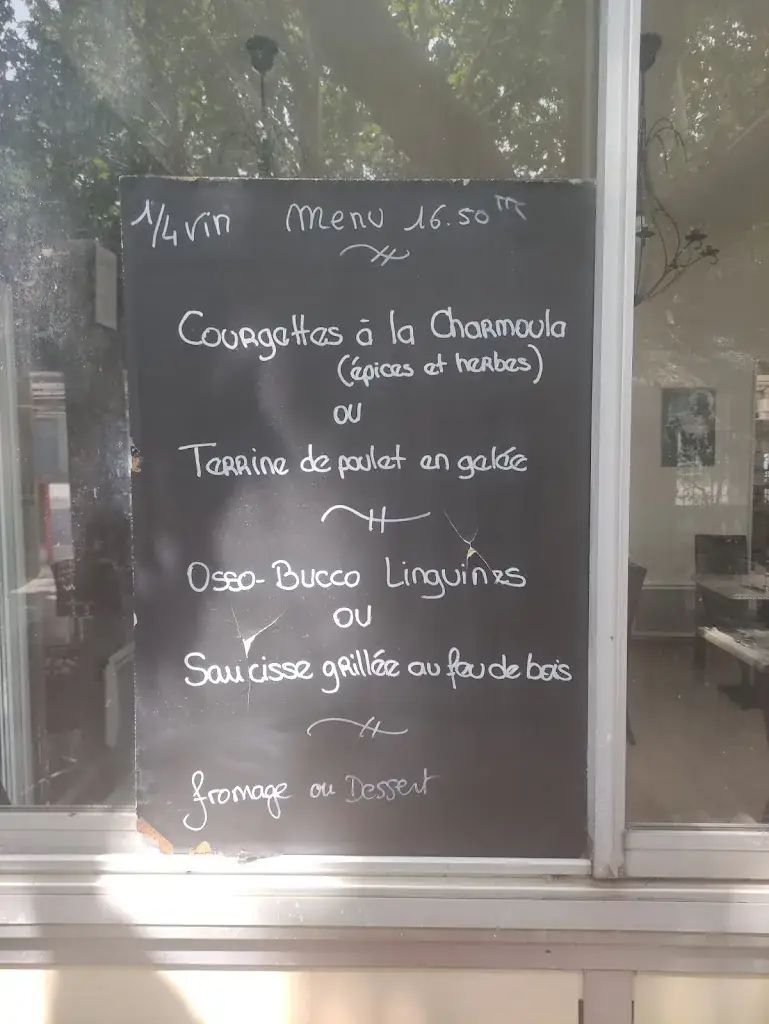 1/4 vin Menu 16.50
Courgettes à la Charmoula
(épices et herbes)
ou
Terrine de poulet en gelée
Osso-Bucco Linguines
ou
Saucisse grillée au feu de bois
fromage ou Dessert